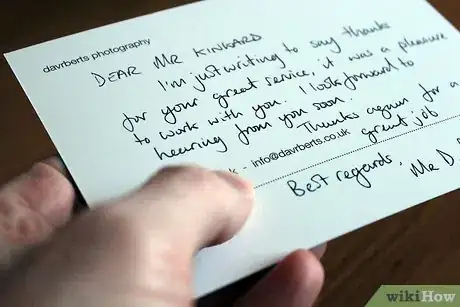 davrberts photography
DEAR MR KINGARD
I'm just writing to say thanks
for your great service, it was a pleasure
to work with you. I look forward to
hearing from you soon.
Thanks again, for a
great job
k - info@davrberts.co.uk
Best regards,
Mr D.
wikiHow